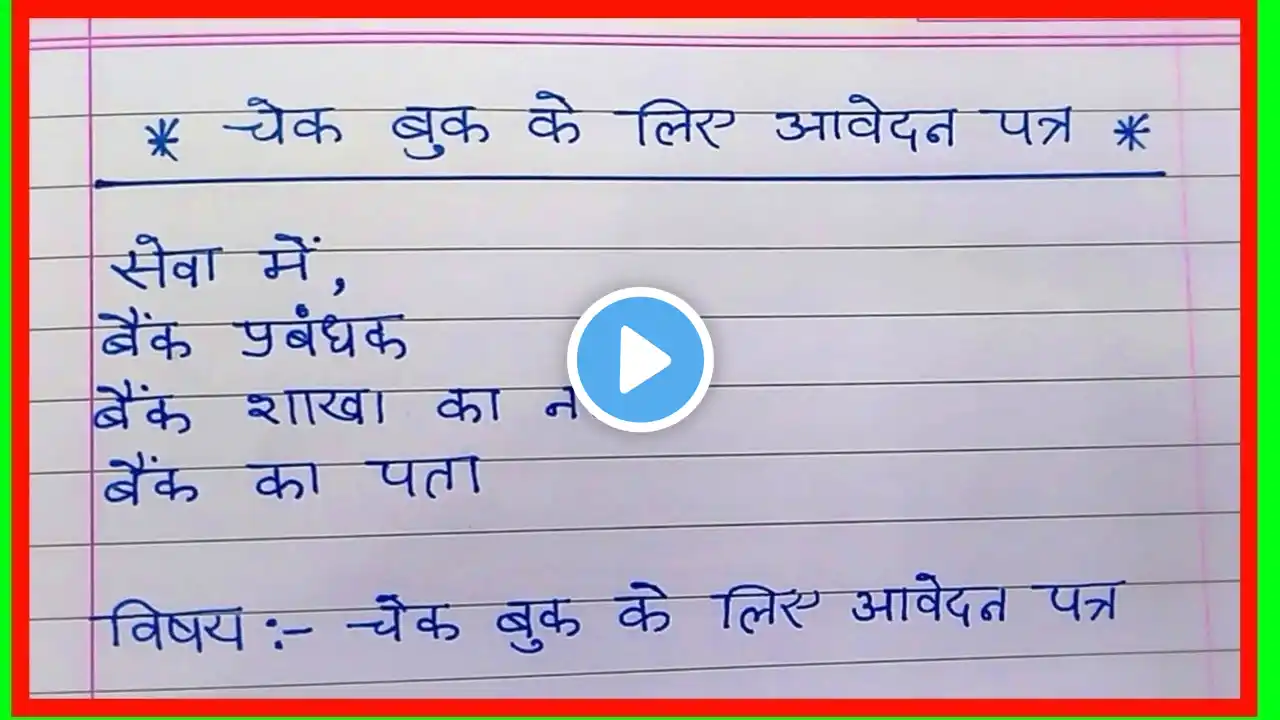 * चेक बुक के लिए आवेदन पत्र *
सेवा में,
बैंक प्रबंधक
बैंक शाखा का
बैंक का पता
विषय :- चेक बुक के लिए आवेदन पत्र